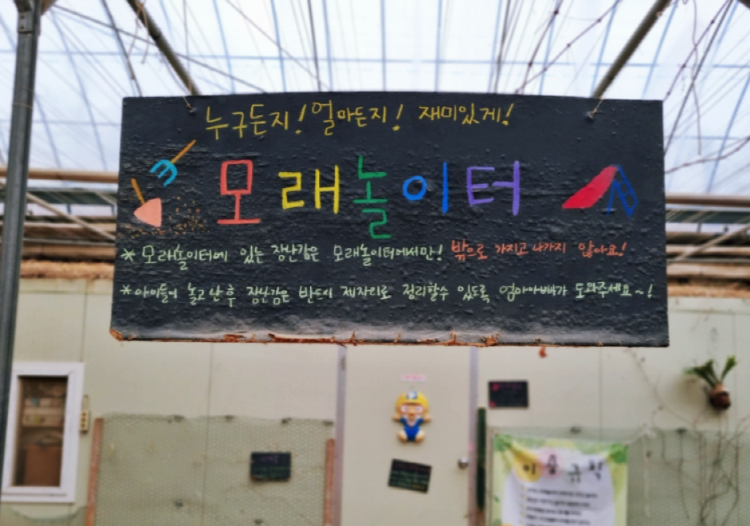 누구든지! 얼마든지! 재미있게!
모래놀이터
* 모래놀이터에 있는 장난감은 모래놀이터에서만! 밖으로 가지고 나가지 않아요!
* 아이들이 놀고 난 후 장난감은 반드시 제자리로 정리할수 있도록 엄마아빠가 도와주세요~!
이용규칙